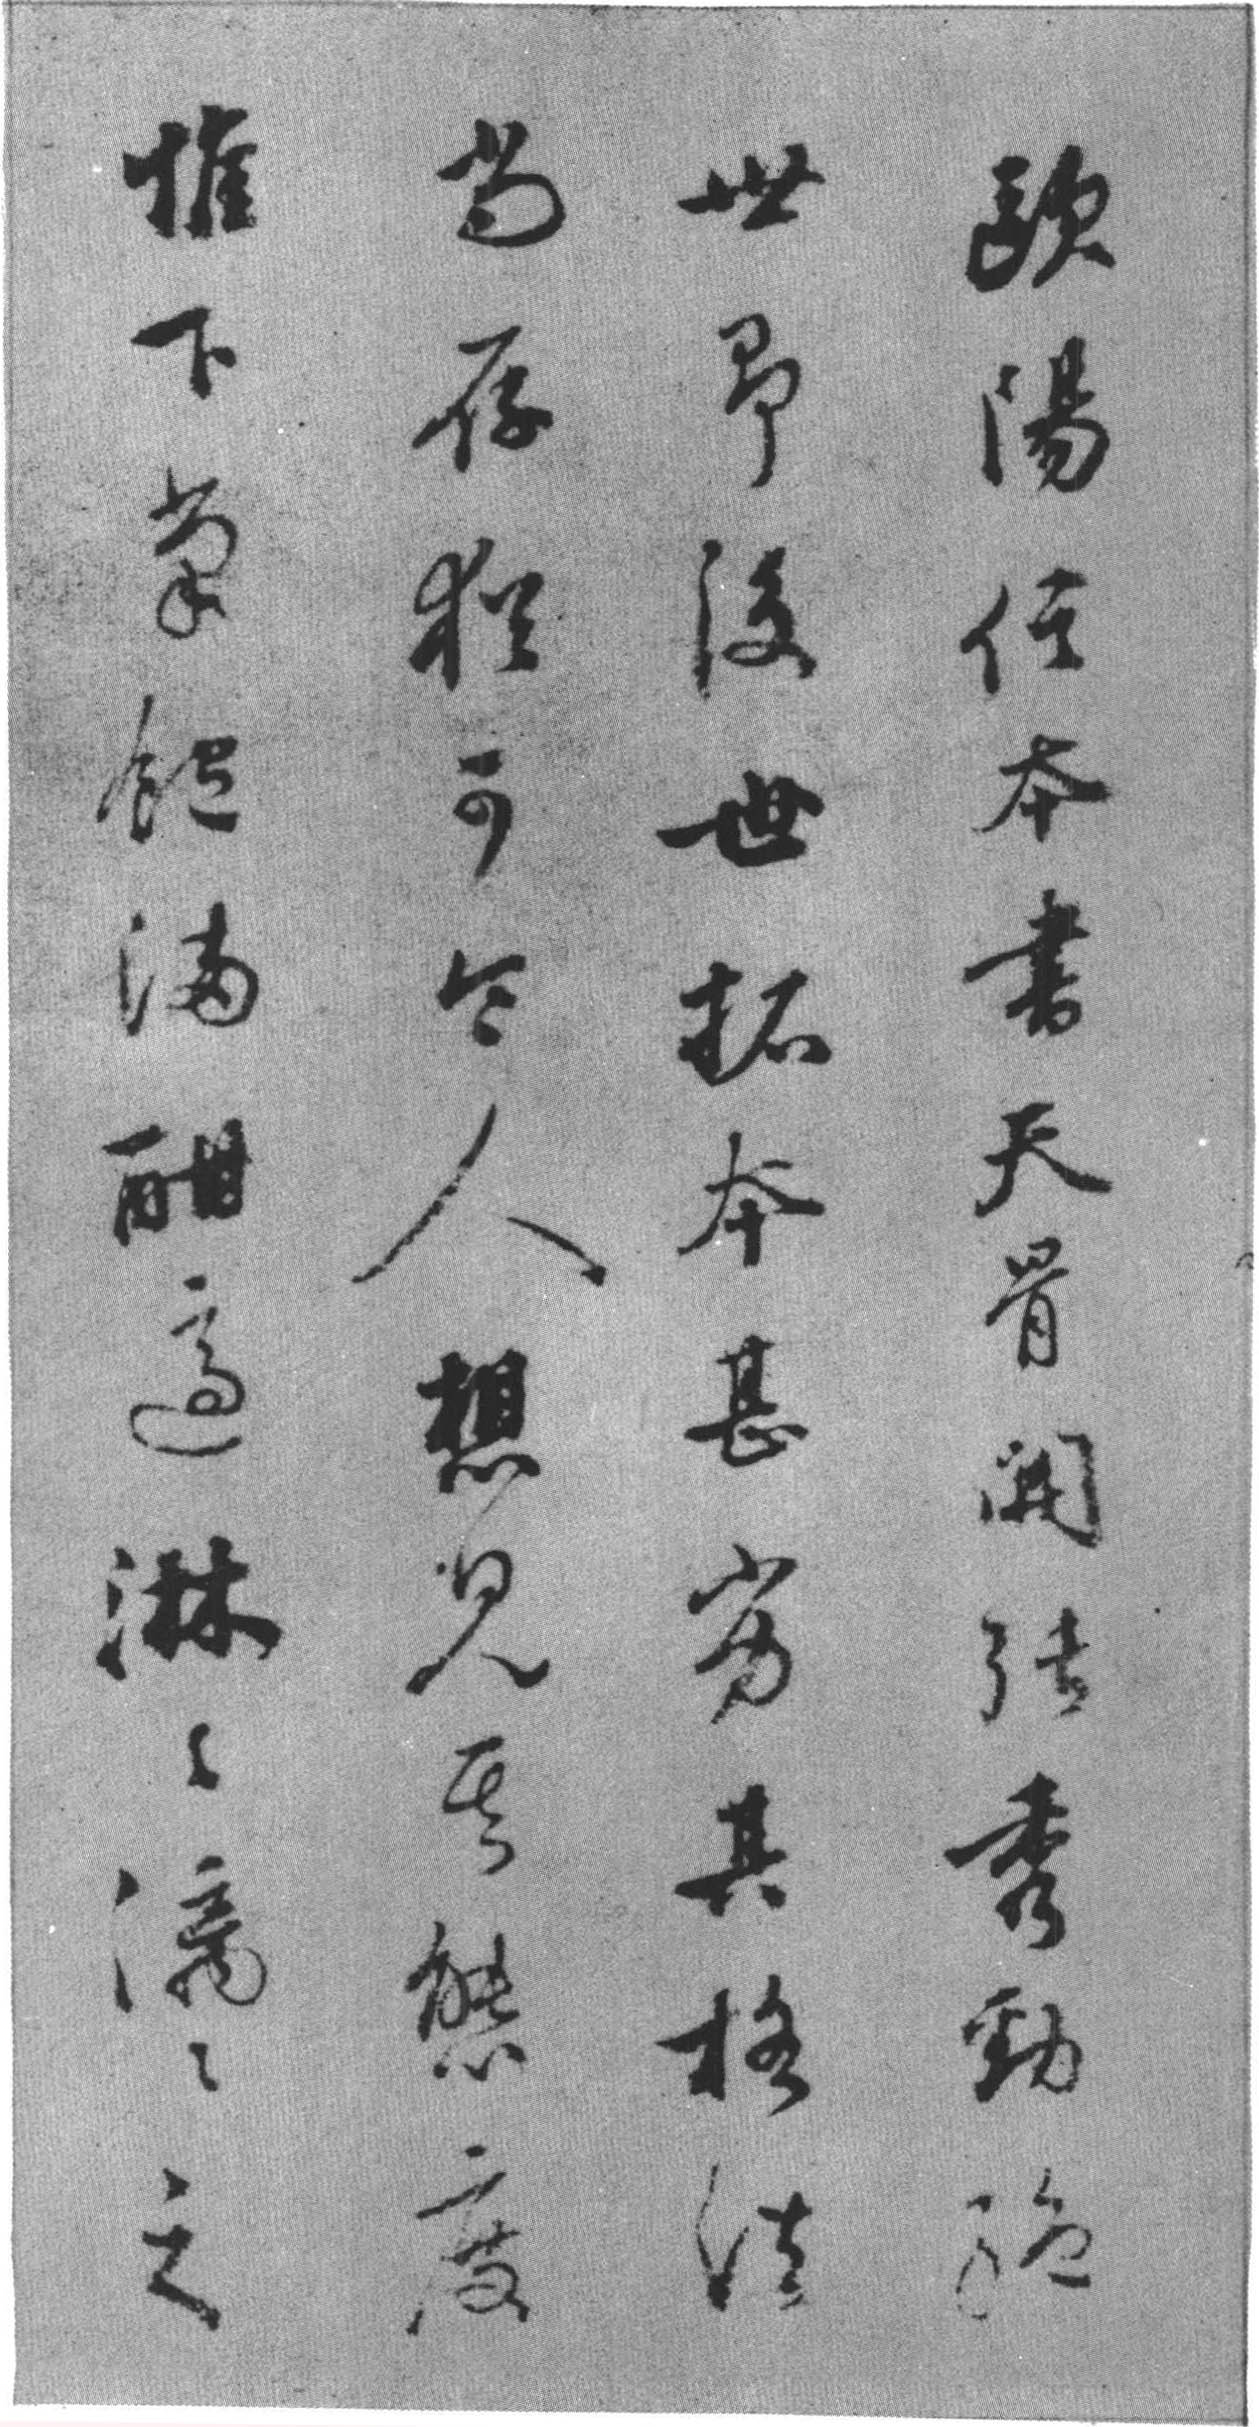 歐陽信本書天骨開張秀勁絕
世即後世拓本甚劣其格法
尚存猶可令人想見其態度
惟下筆飽滿酣適淋〻漓〻之